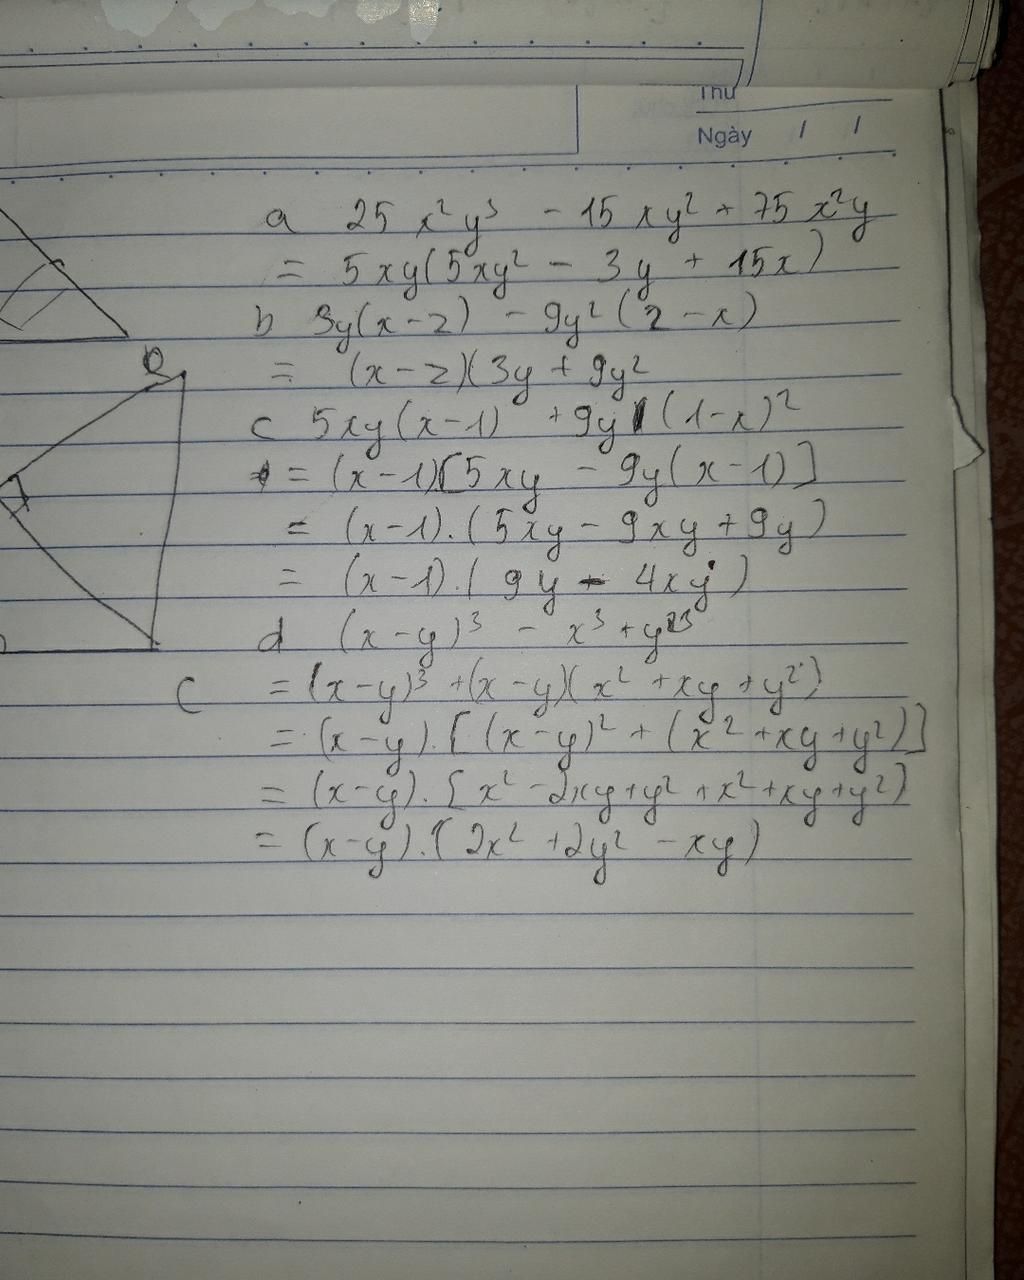 Thứ
Ngày / /
a 25 x²y³ - 15 xy² + 75 x²y
= 5xy(5xy² - 3y + 15x)
b 3y(x-2) - 9y²(2-x)
Q
= (x-2)(3y + 9y²
c 5xy(x-1) + 9y (1-x)²
= (x-1)[5xy - 9y(x-1)]
= (x-1).(5xy - 9xy + 9y)
= (x-1).(9y - 4xy)
d (x-y)³ - x³ + y³
C = (x-y)³ +(x-y)(x² +xy +y²)
= (x-y).[(x-y)² + (x² +xy +y²)]
= (x-y).[x² -2xy+y² +x²+xy+y²]
= (x-y).(2x² +2y² -xy)